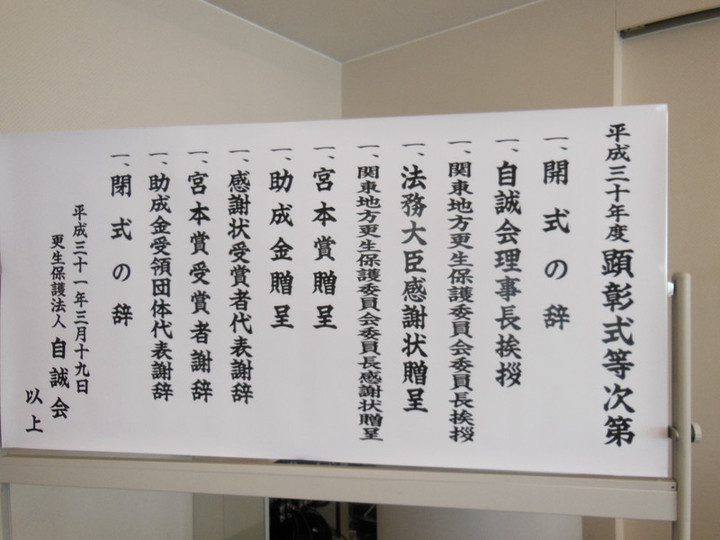 平成三十年度 顕彰式等次第
一、開式の辞
一、自誠会理事長挨拶
一、関東地方更生保護委員会委員長挨拶
一、法務大臣感謝状贈呈
一、関東地方更生保護委員会委員長感謝状贈呈
一、宮本賞贈呈
一、助成金贈呈
一、感謝状受賞者代表謝辞
一、宮本賞受賞者謝辞
一、助成金受領団体代表謝辞
一、閉式の辞
平成三十一年三月十九日
更生保護法人 自誠会
以上